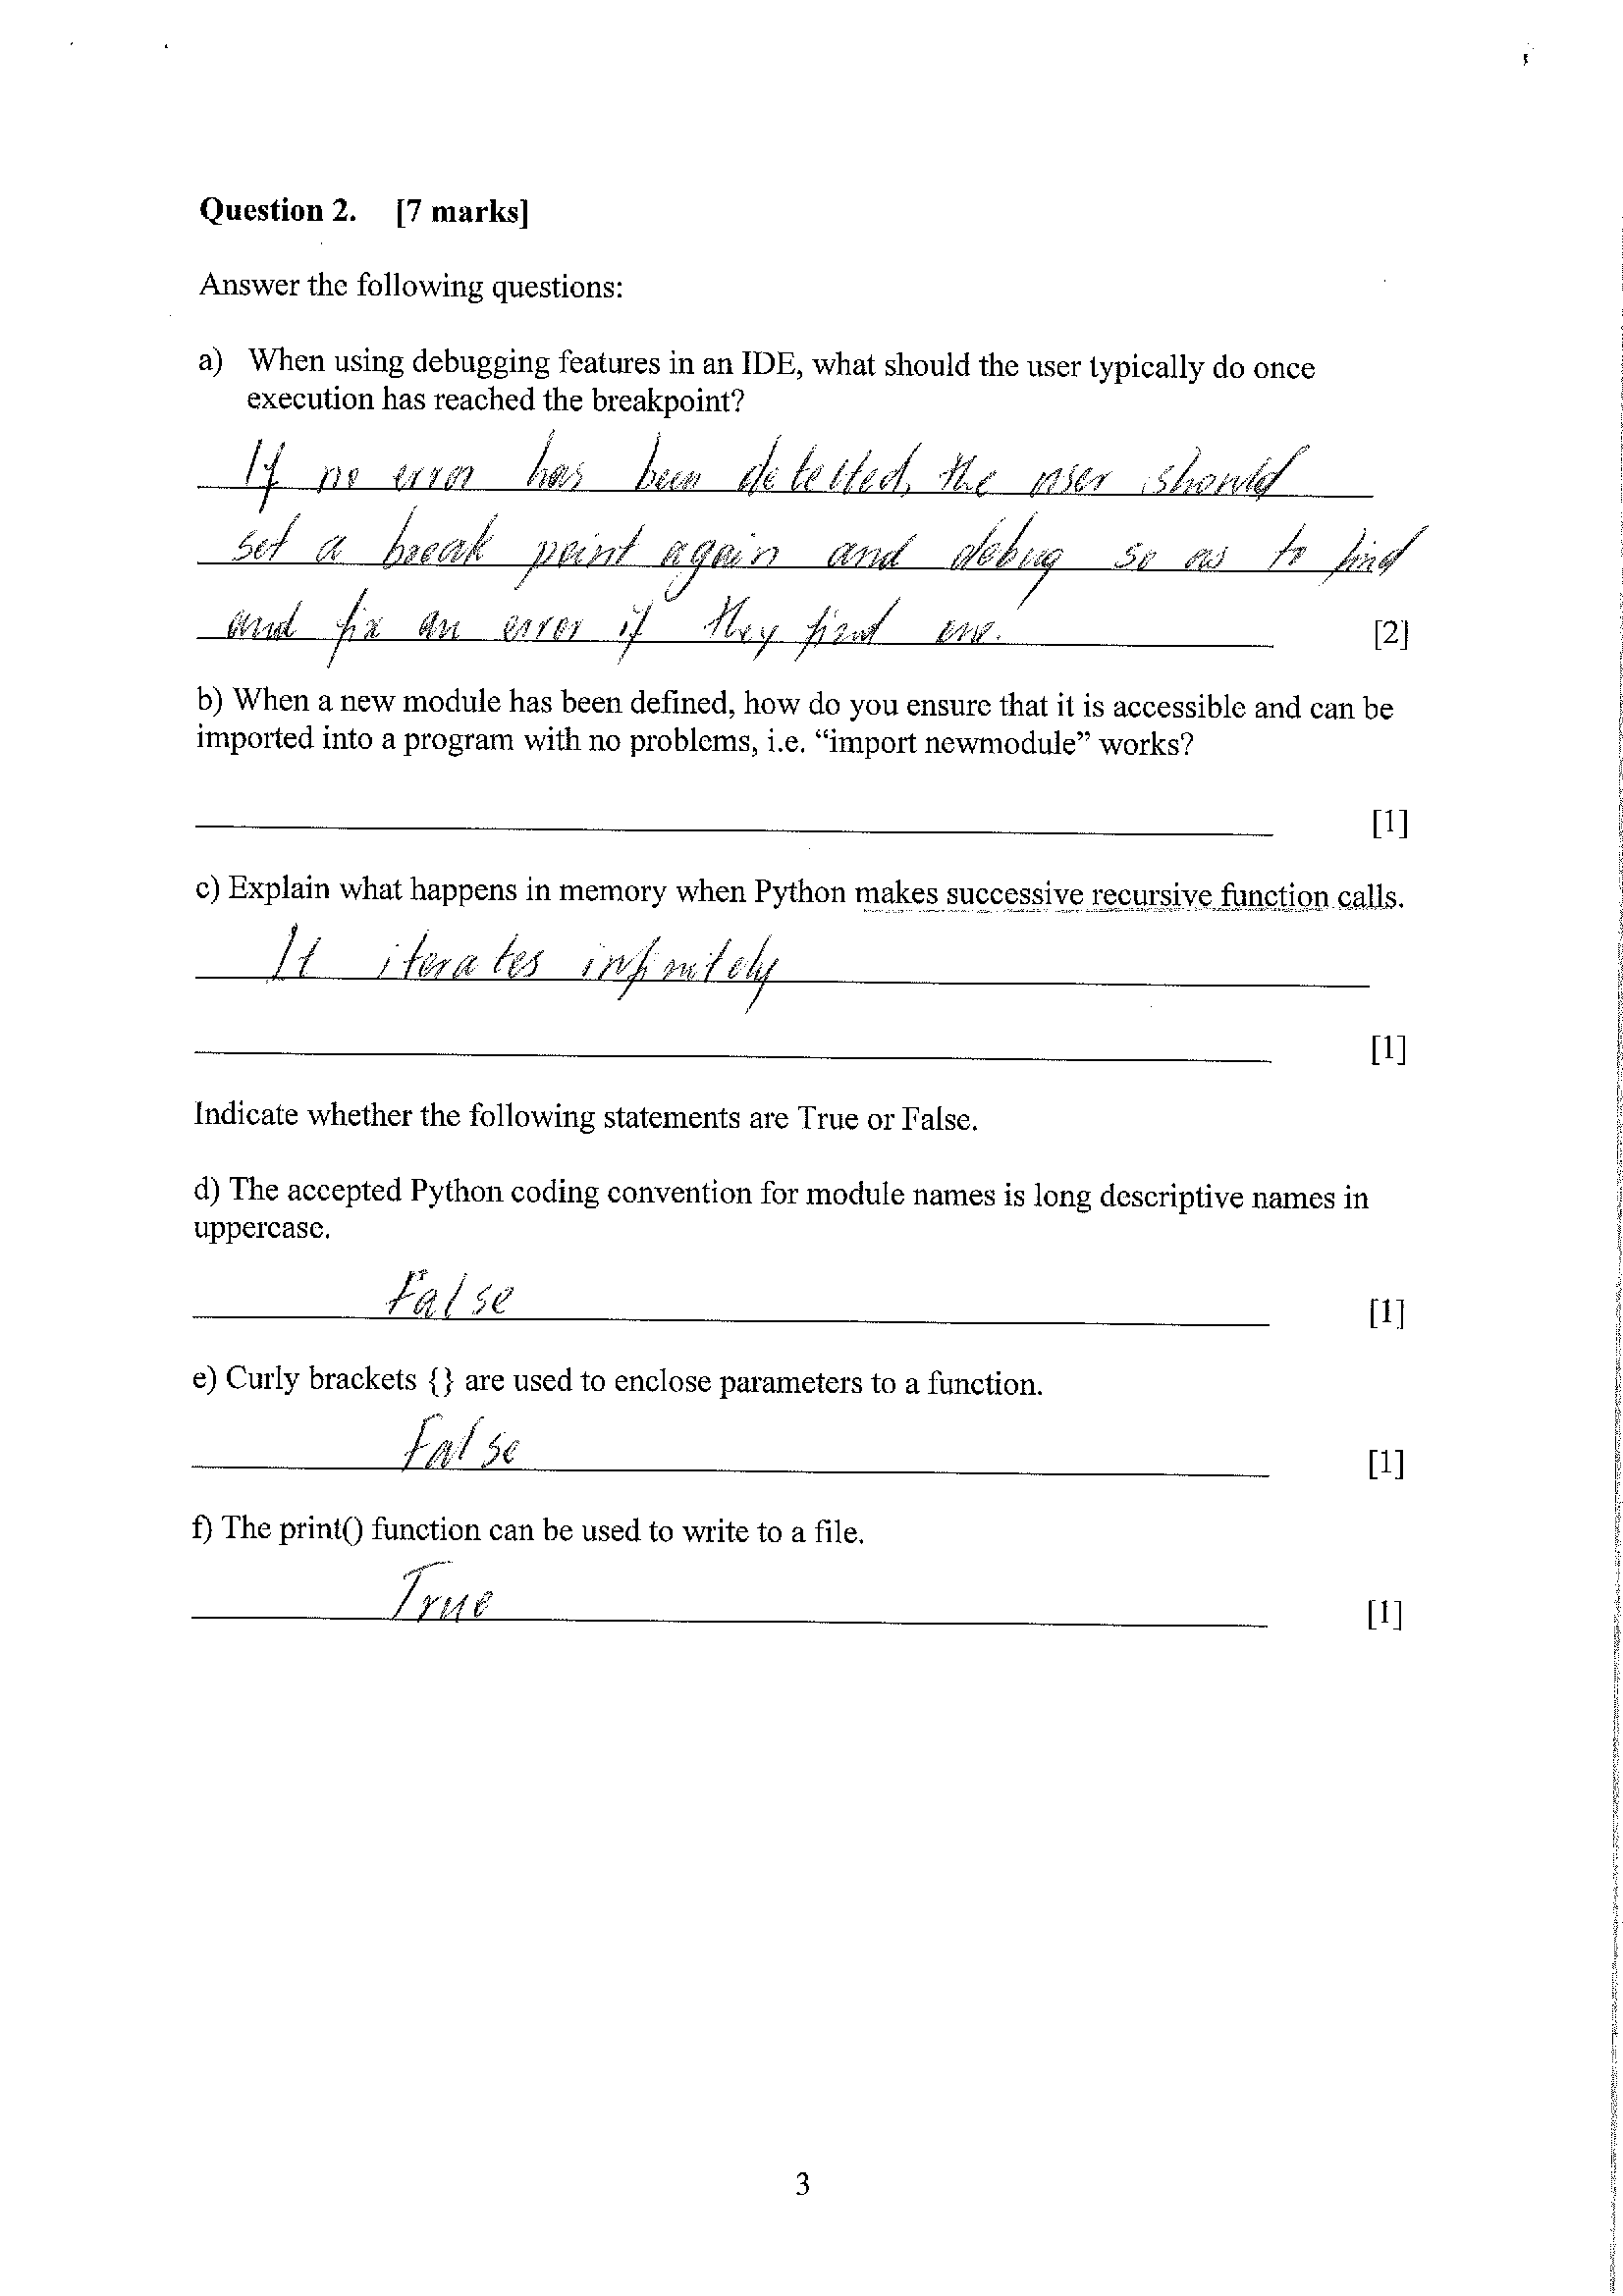 Question 2. [7 marks]
Answer the following questions:
a) When using debugging features in an IDE, what should the user typically do once
execution has reached the breakpoint?
If no error has been detected, the user should
set a break point again and debug so as to find
and fix an error if they find one.
[2]
b) When a new module has been defined, how do you ensure that it is accessible and can be
imported into a program with no problems, i.e. “import newmodule” works?
[1]
c) Explain what happens in memory when Python makes successive recursive function calls.
It iterates infinitely
[1]
Indicate whether the following statements are True or False.
d) The accepted Python coding convention for module names is long descriptive names in
uppercase.
False [1]
e) Curly brackets {} are used to enclose parameters to a function.
False [1]
f) The print() function can be used to write to a file.
True [1]
3